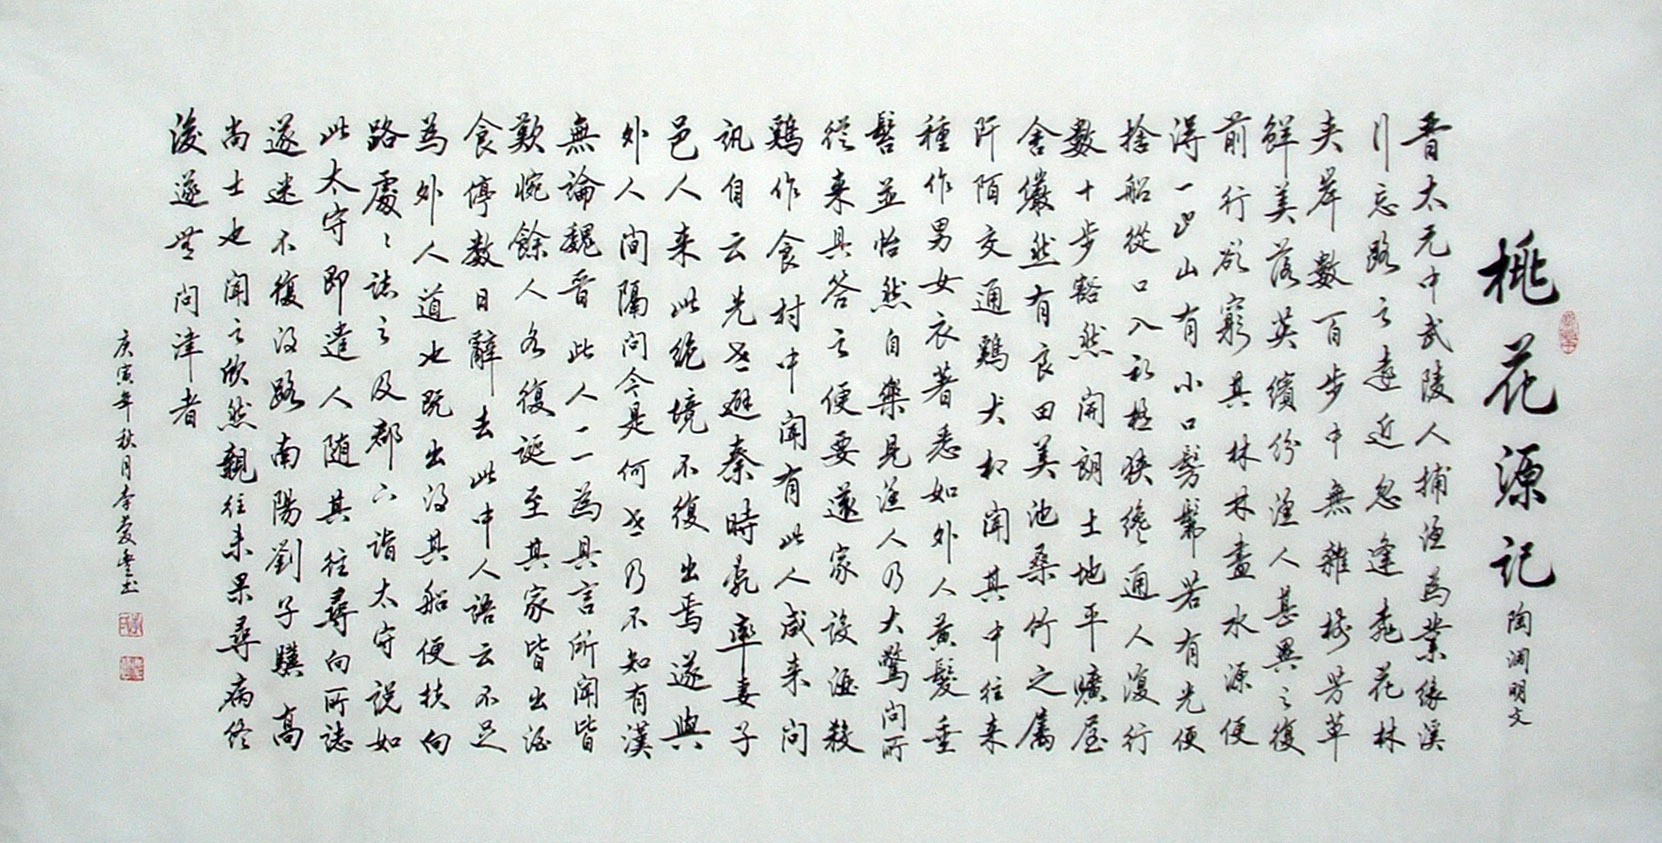 桃花源记
陶渊明文
晋太元中武陵人捕渔為業緣溪
行忘路之遠近忽逢桃花林
夹岸數百步中無雜樹芳草
鮮美落英繽纷渔人甚異之復
前行欲窮其林林盡水源便
得一山山有小口髣髴若有光便
捨船從口入初極狹纔通人復行
數十步豁然開朗土地平曠屋
舍儼然有良田美池桑竹之属
阡陌交通鷄犬相聞其中往来
種作男女衣著悉如外人黃髮垂
髫並怡然自樂見渔人乃大驚問所
從来具答之便要遂家設酒殺
鷄作食村中聞有此人咸来问
訊自云先世避秦時亂率妻子
邑人来此绝境不復出焉遂與
外人间隔问今是何世乃不知有漢
無論魏晋此人一一為具言所聞皆
歎惋餘人各復延至其家皆出酒
食停数日辭去此中人語云不足
為外人道也既出得其船便扶向
路處處誌之及郡下詣太守說如
此太守即遣人随其往尋向所誌
遂迷不復得路南陽劉子驥高
尚士也聞之欣然親往未果尋病终
後遂無问津者
庚寅年秋月李